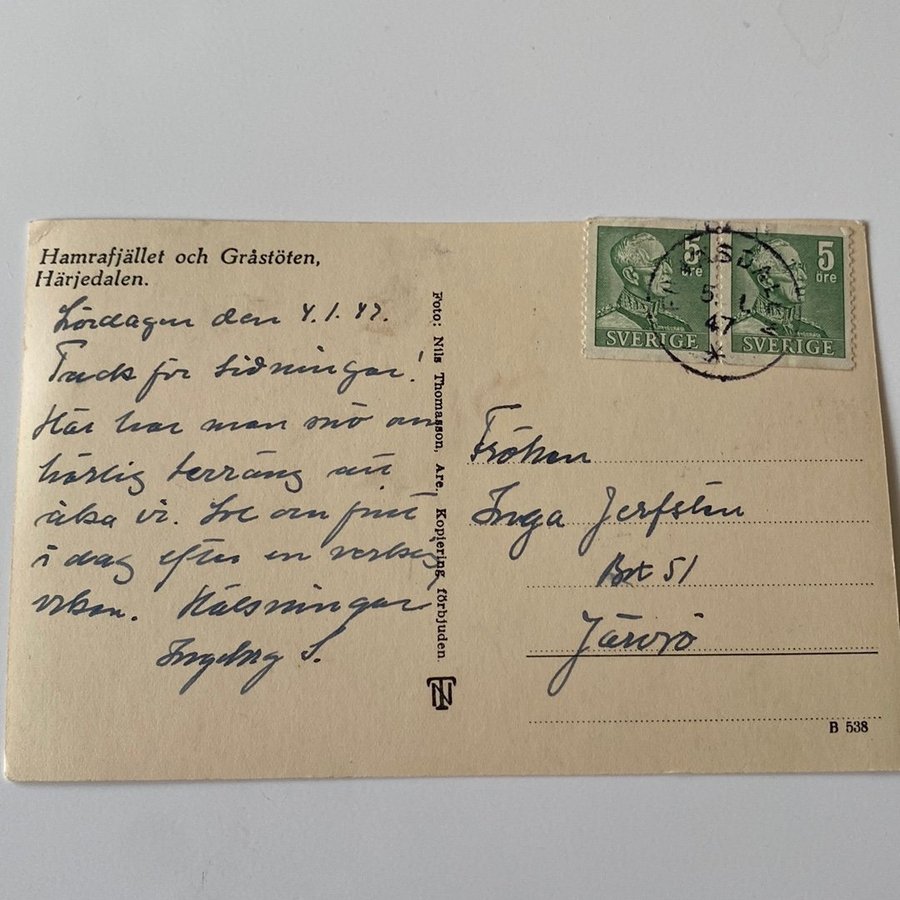 Hamrafjället och Gråstöten,
Härjedalen.
Lördagen den 4.1.47.
Tack för tidningar!
Här har man snö o
härlig terräng att
åka i. Sol o fint
i dag efter en
veckan. Hälsningar
Ingeborg S.
Foto: Nils Thomasson, Åre. Kopiering förbjuden
NT
5
öre
SVERIGE
5
öre
SVERIGE
5. 1.
47
Fröken
Inga Jerfstén
Box 51
Järvsö
B 538